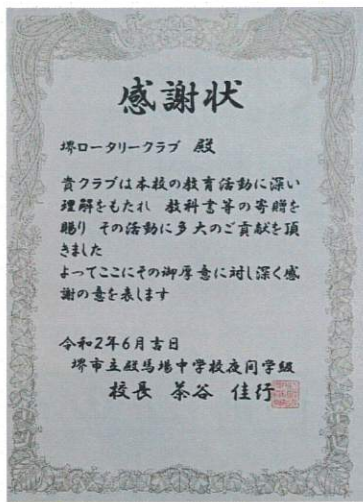 感謝状
堺ロータリークラブ 殿
貴クラブは本校の教育活動に深い
理解をもたれ 教科書等の寄贈を
賜り その活動に多大のご貢献を頂
きました
よってここにその御厚意に対し深く感
謝の意を表します
令和2年6月吉日
堺市立殿馬場中学校夜間学級
校長 茶谷 佳行